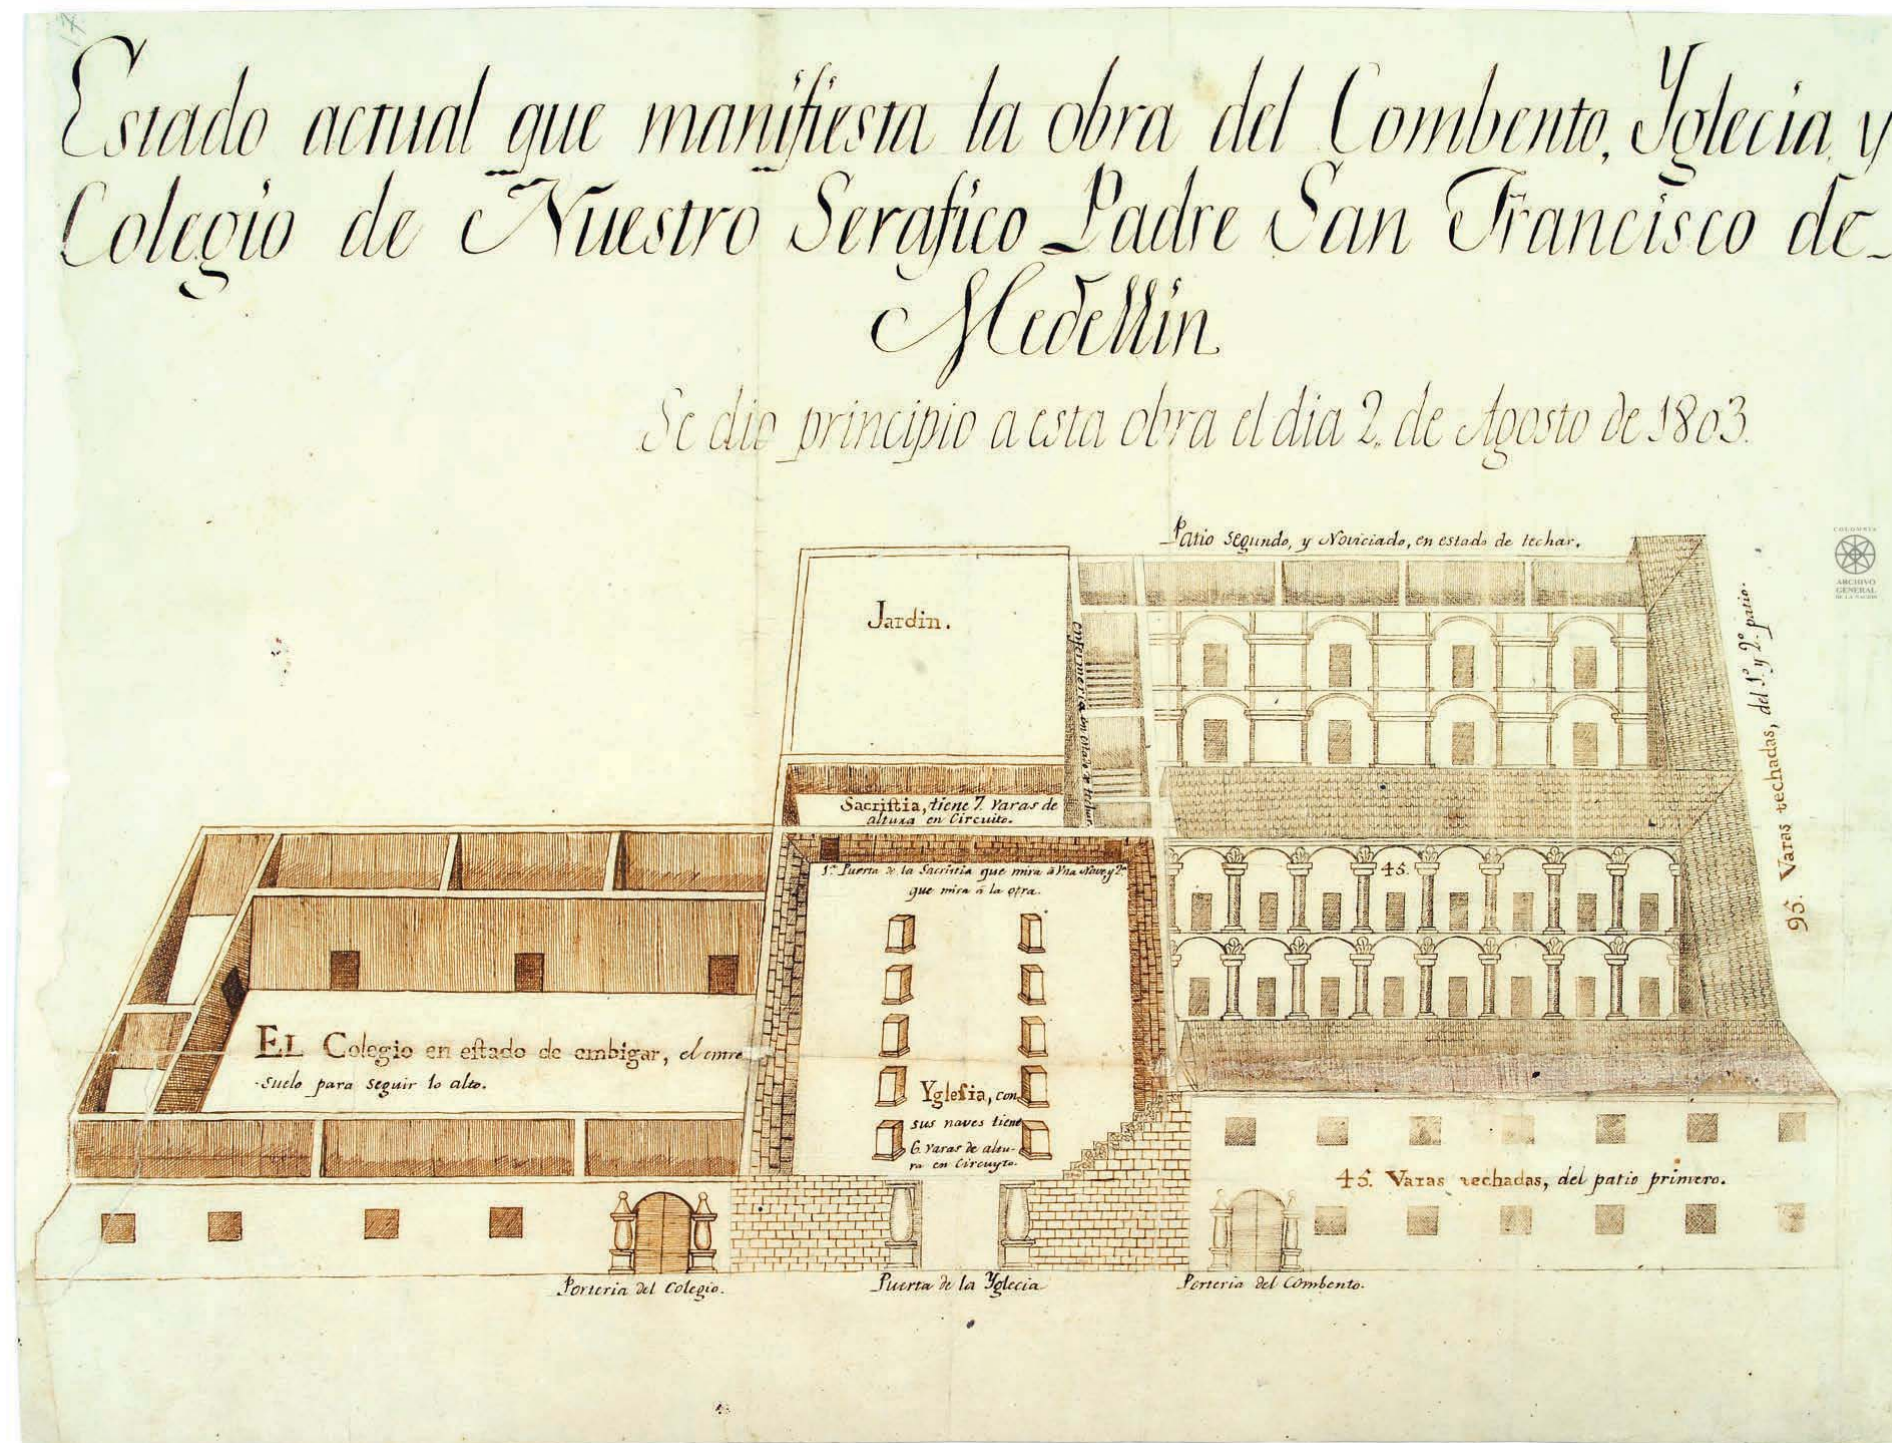 Estado actual que manifiesta la obra del Combento, Yglecia, y
Colegio de Nuestro Serafico Padre San Francisco de
Medellin.
Se dio principio a esta obra el dia 2. de Agosto de 1803.
Patio segundo, y Noviciado, en estado de techar.
COLOMBIA
ARCHIVO
GENERAL
DE LA NACION
Jardin.
enfermeria en estado de techar.
95. Varas techadas, del 1º. y 2º. patio.
Sacristia, tiene 7. Varas de
altura en Circuito.
1ª. Puerta de la Sacristia que mira à Vna Nave, y 2ª
que mira á la otra.
45.
EL Colegio en estado de embigar, el entre
-suelo para seguir lo alto.
Yglesia, con
sus naves tiene
6. varas de altu-
ra en Circuyto.
45. Varas techadas, del patio primero.
Porteria del Colegio.
Puerta de la Yglecia
Porteria del Combento.